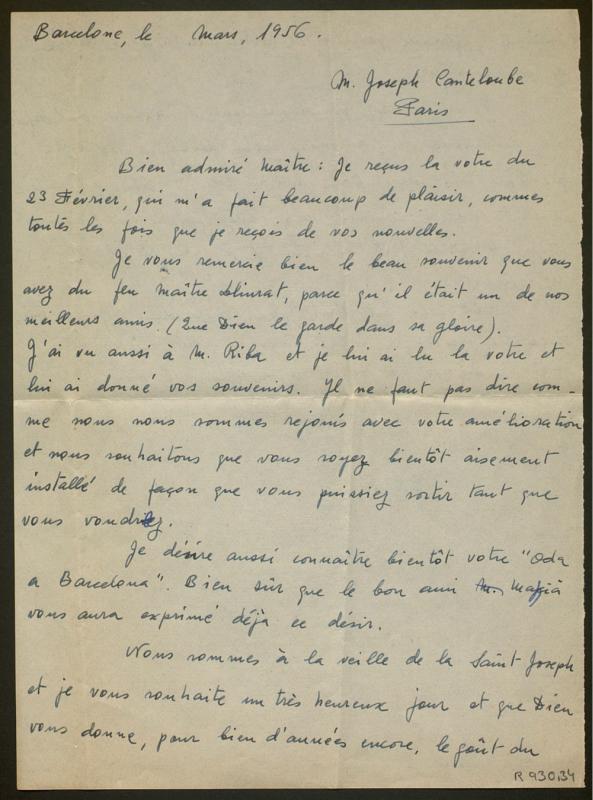 Barcelone, le mars, 1956.
M. Joseph Canteloube
Paris
Bien admiré Maître: Je reçus la votre du
23 Février, qui m'a fait beaucoup de plaisir, commes
toutes les fois que je reçois de vos nouvelles.
Je vous remercie bien le beau souvenir que vous
avez du feu Maître Llinrat, parce qu'il était un de nos
meilleurs amis. (Que Dien le garde dans sa gloire).
J'ai vu aussi à M. Riba et je lui ai lu la votre et
lui ai donné vos souvenirs. Il ne faut pas dire com-
me nous nous sommes rejouis avec votre amélioration
et nous souhaitons que vous soyez bientôt aisement
installé de façon que vous puissiez sortir tant que
vous voudriez.
Je désire aussi connaître bientôt votre "Oda
a Barcelona". Bien sûr que le bon ami
vous aura exprimé déjà ce désir.
Nous sommes à la veille de la Saint Joseph
et je vous souhaite un très heureux jour et que Dieu
vous donne, pour bien d'années encore, le goût du
R 930.34